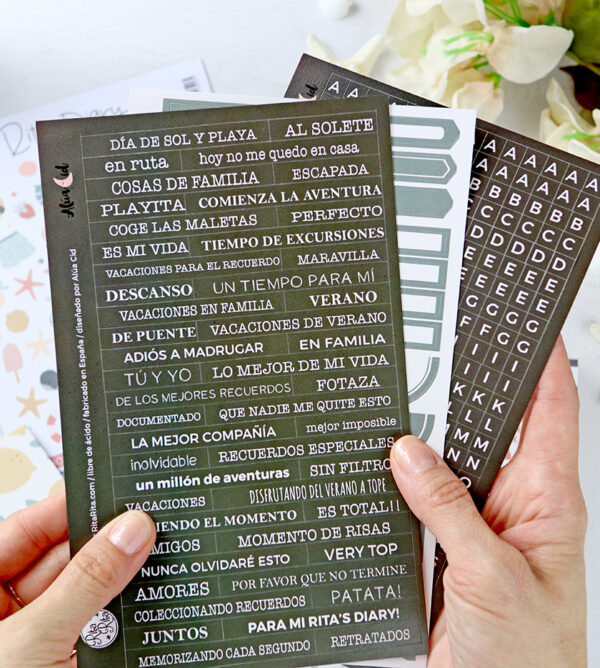 DÍA DE SOL Y PLAYA AL SOLETE
en ruta hoy no me quedo en casa
COSAS DE FAMILIA ESCAPADA
PLAYITA COMIENZA LA AVENTURA
COGE LAS MALETAS PERFECTO
ES MI VIDA TIEMPO DE EXCURSIONES
VACACIONES PARA EL RECUERDO MARAVILLA
DESCANSO UN TIEMPO PARA MÍ
VACACIONES EN FAMILIA VERANO
DE PUENTE VACACIONES DE VERANO
ADIÓS A MADRUGAR EN FAMILIA
TÚ Y YO LO MEJOR DE MI VIDA
DE LOS MEJORES RECUERDOS FOTAZA
DOCUMENTADO QUE NADIE ME QUITE ESTO
LA MEJOR COMPAÑÍA mejor imposible
inolvidable RECUERDOS ESPECIALES
un millón de aventuras SIN FILTRO
VACACIONES DISFRUTANDO DEL VERANO A TOPE
IENDO EL MOMENTO ES TOTAL!!
MIGOS MOMENTO DE RISAS
NUNCA OLVIDARÉ ESTO VERY TOP
AMORES POR FAVOR QUE NO TERMINE
COLECCIONANDO RECUERDOS PATATA!
JUNTOS PARA MI RITA'S DIARY!
MEMORIZANDO CADA SEGUNDO RETRATADOS
Alúa Cid
RitaRita.com / libre de ácido / fabricado en España / diseñado por Alúa Cid
Rita Rita
Rita Diary
Alúa Cid